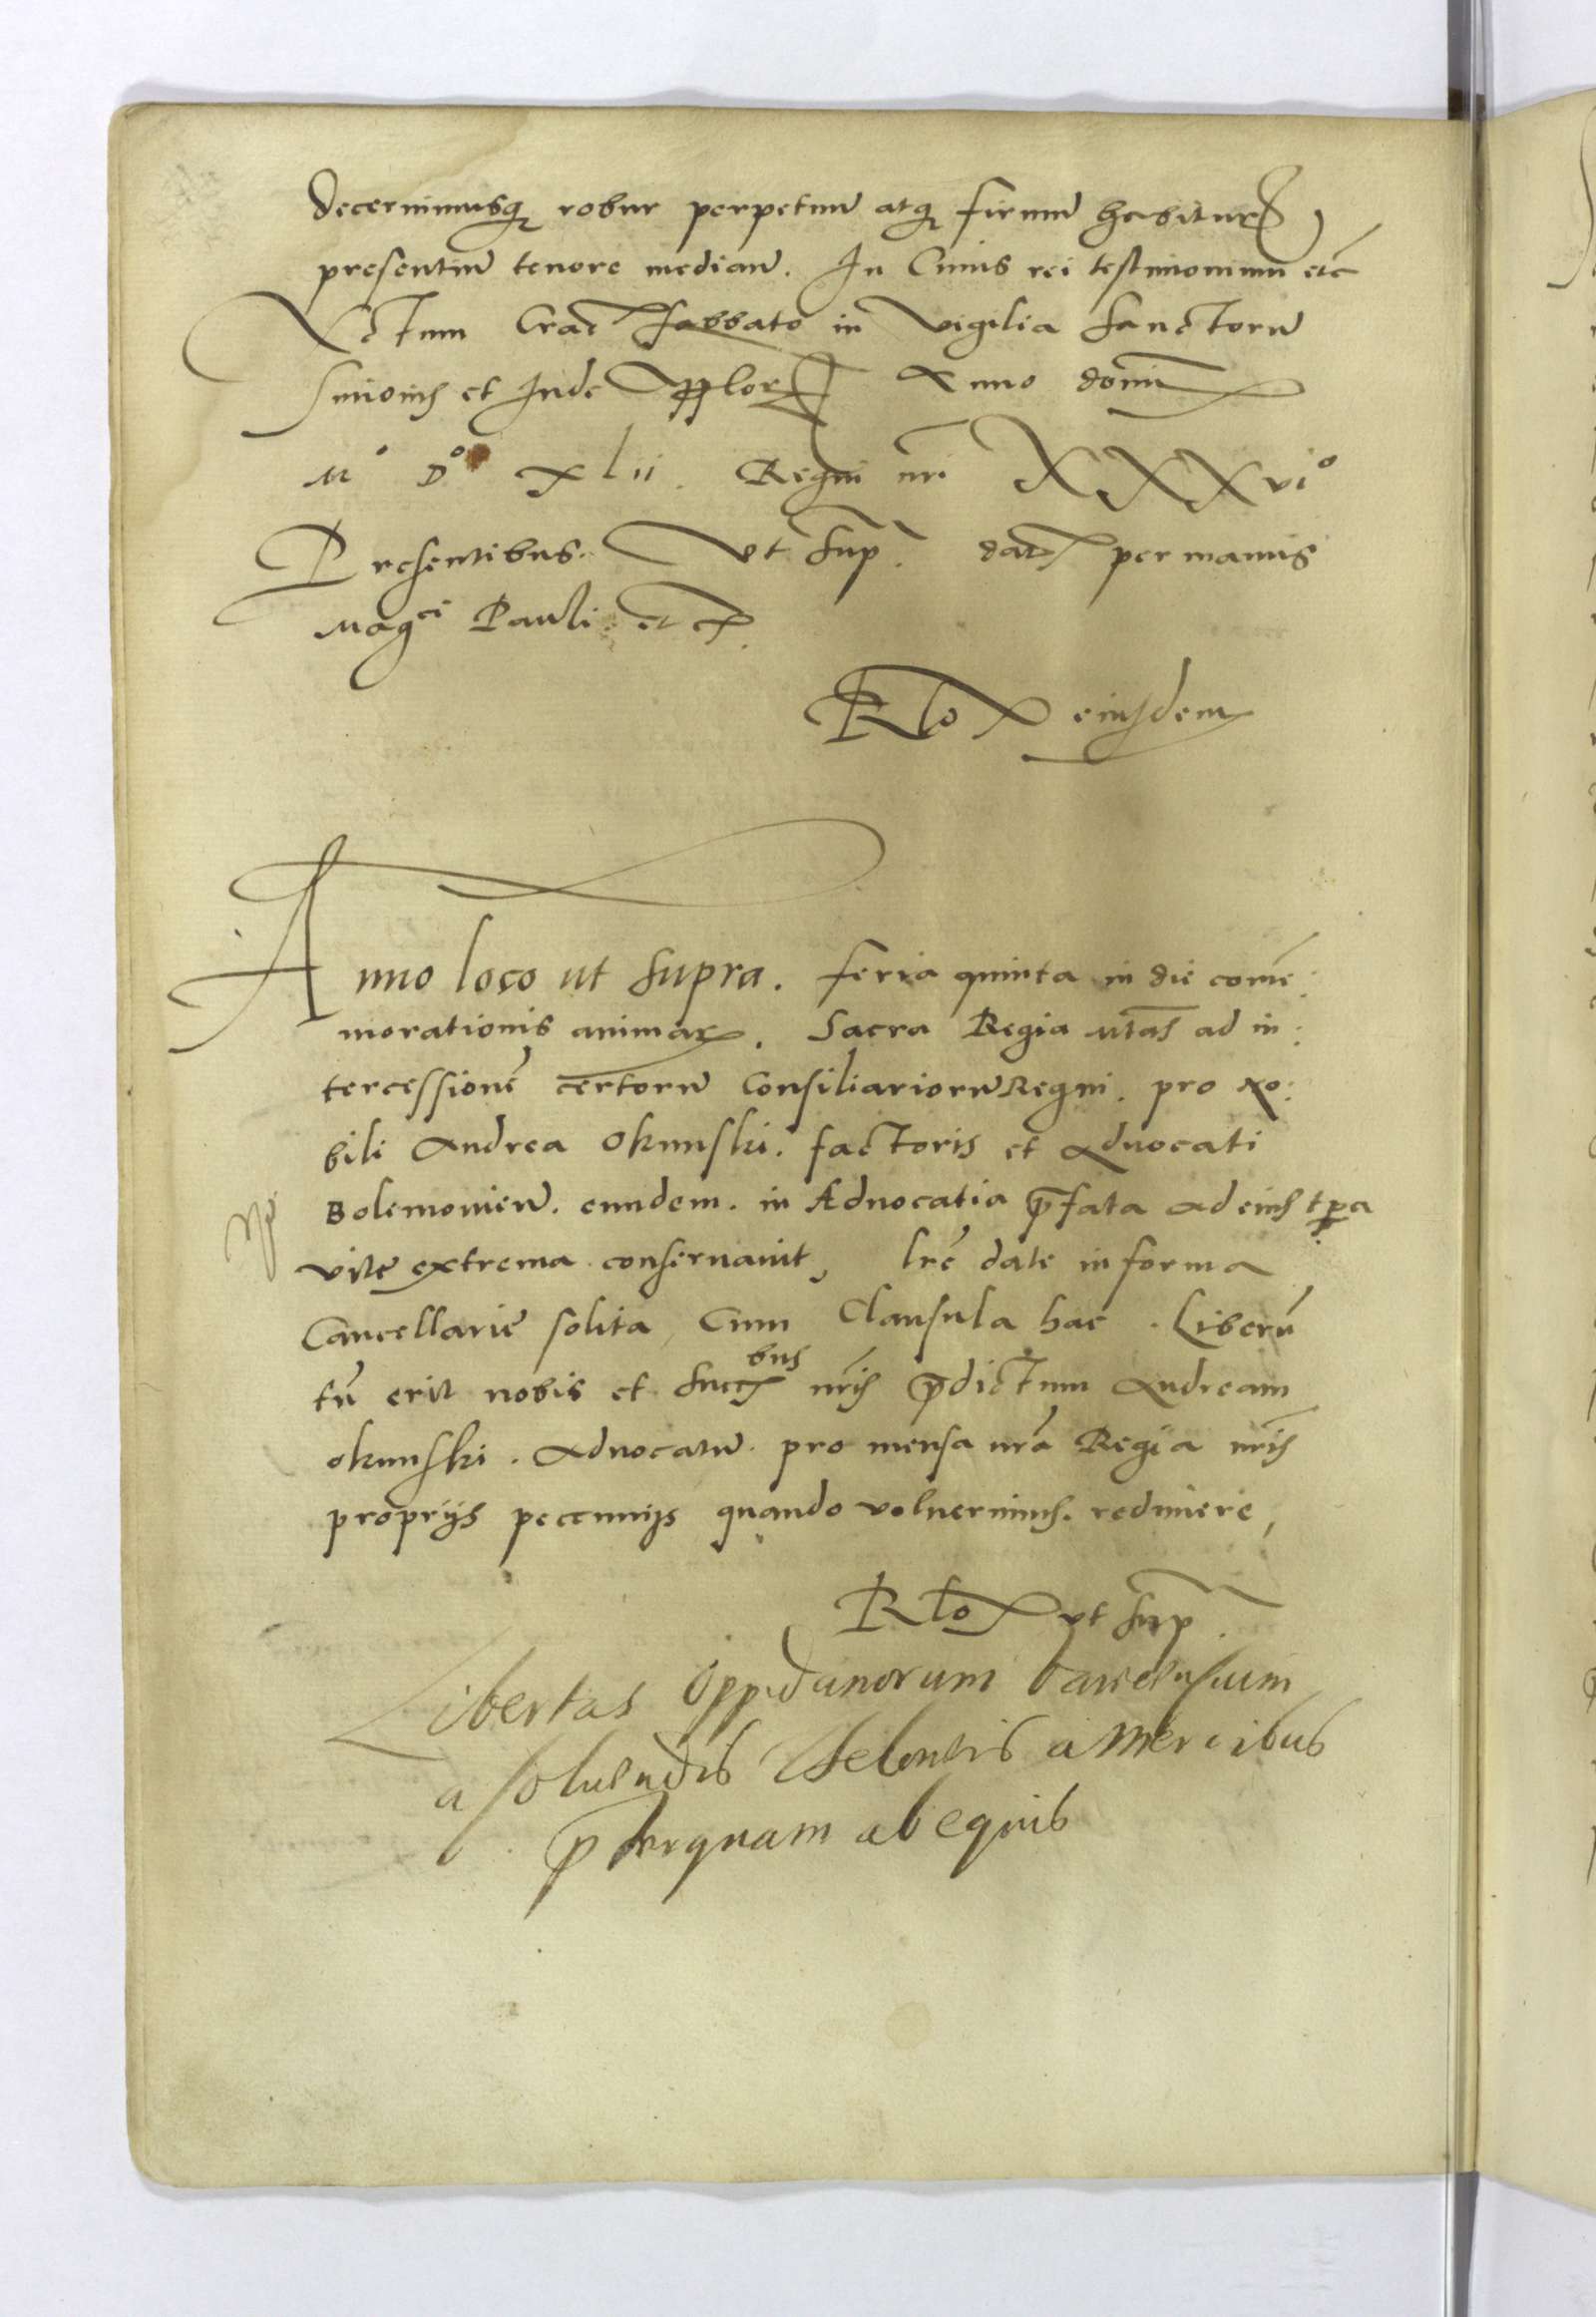 decernimusq; robur perpetuũ atq; firmũ habitur;
presentiũ tenore median̄. In Cuius rei testimonium etc̄
Actum Crac̄ sabbato in vigilia sanctorũ
Simonis et Iude Applor; Anno domini
M° D° xlii. Regni nr̄i XXXvi°
Presentibus ut sup̄. dat̄ per manus
Mag^ci Pauli etc̄.
Rl̄o eiusdem
Anno loco ut supra. feria quinta in die com̄e:
morationis animar;. Sacra Regia Mtas̄ ad in:
tercessionẽ certorũ Consiliariorũ Regni. pro No:
bili Andrea Okunski. factoris et Advocati
Bolemovien̄. eundem. in Advocatia p̄fata ad eius tp̄a
vite extrema conservavit, lr̄e date in forma
Cancellarie solita, Cum Clausula hac. Liberũ
tñ erit nobis et succ^bus nr̄is p̄dictum Andream
okunski. Advocatũ. pro mensa nr̄a Regia nr̄is
proprijs peccunijs quando voluerimus. redimere,
Rl̄o ut sup̄.
Libertas Oppidanorum
a solvendis theloneis a mercibus
p̄terquam ab equis